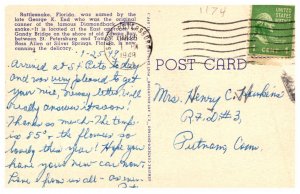 Rattlesnake, Florida, was named by the
late George K. End who was the original
canner of the famous Diamondback Rattle-
snake. It is located at the east end of
Gandy Bridge on the shore of Old Tampa Bay,
between St. Petersburg and Tampa, Florida.
Ross Allen of Silver Springs, Florida, is now
canning the delicacy.
1174
1-25-49
1949
POST CARD
Arrived at St Pete Friday
and was very pleased to get
your nice, newsy letter will
really answer it soon!
Thanks so much. The temp
is 85° & the flowers so
lovely this year! Hope you
have your new car now.
Love from us all - as ever
Mrs. Henry C. Hawkins
R.F.D. #3,
Putnam Conn.